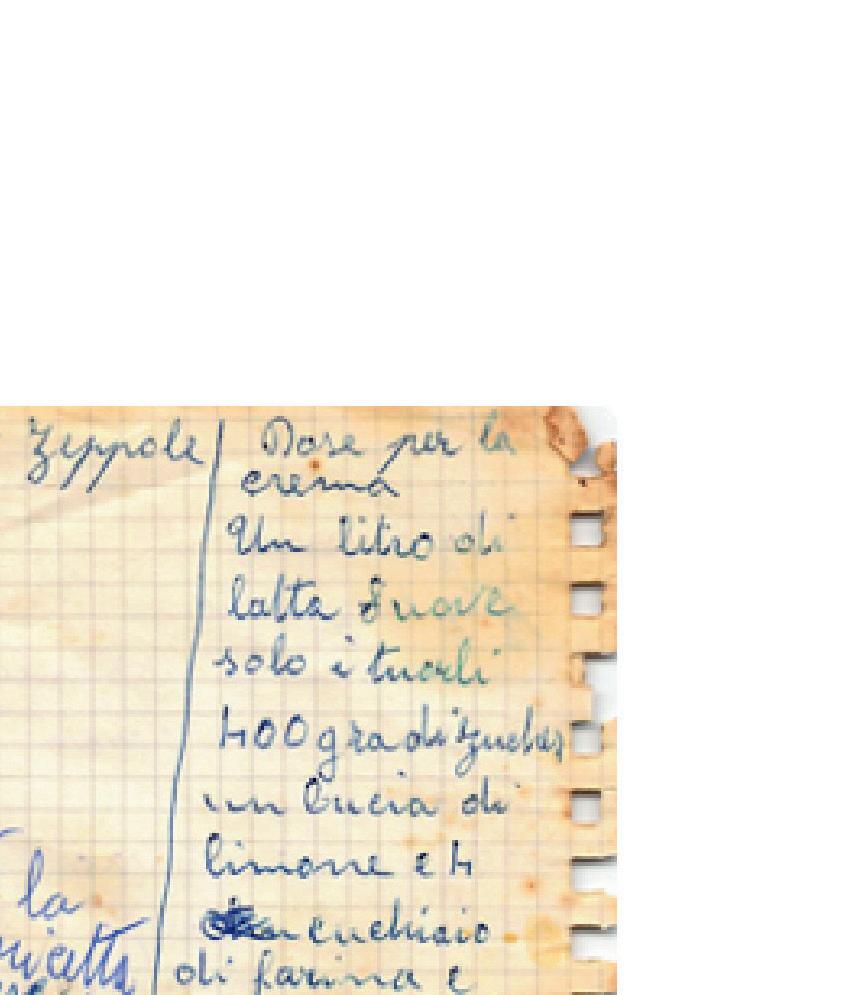 Zeppole
la
Dose per la
crema
Un litro di
latta 8 uove
solo i tuorli
400 gra di
un bucia di
limone e 4
cuchiaio
di farina e